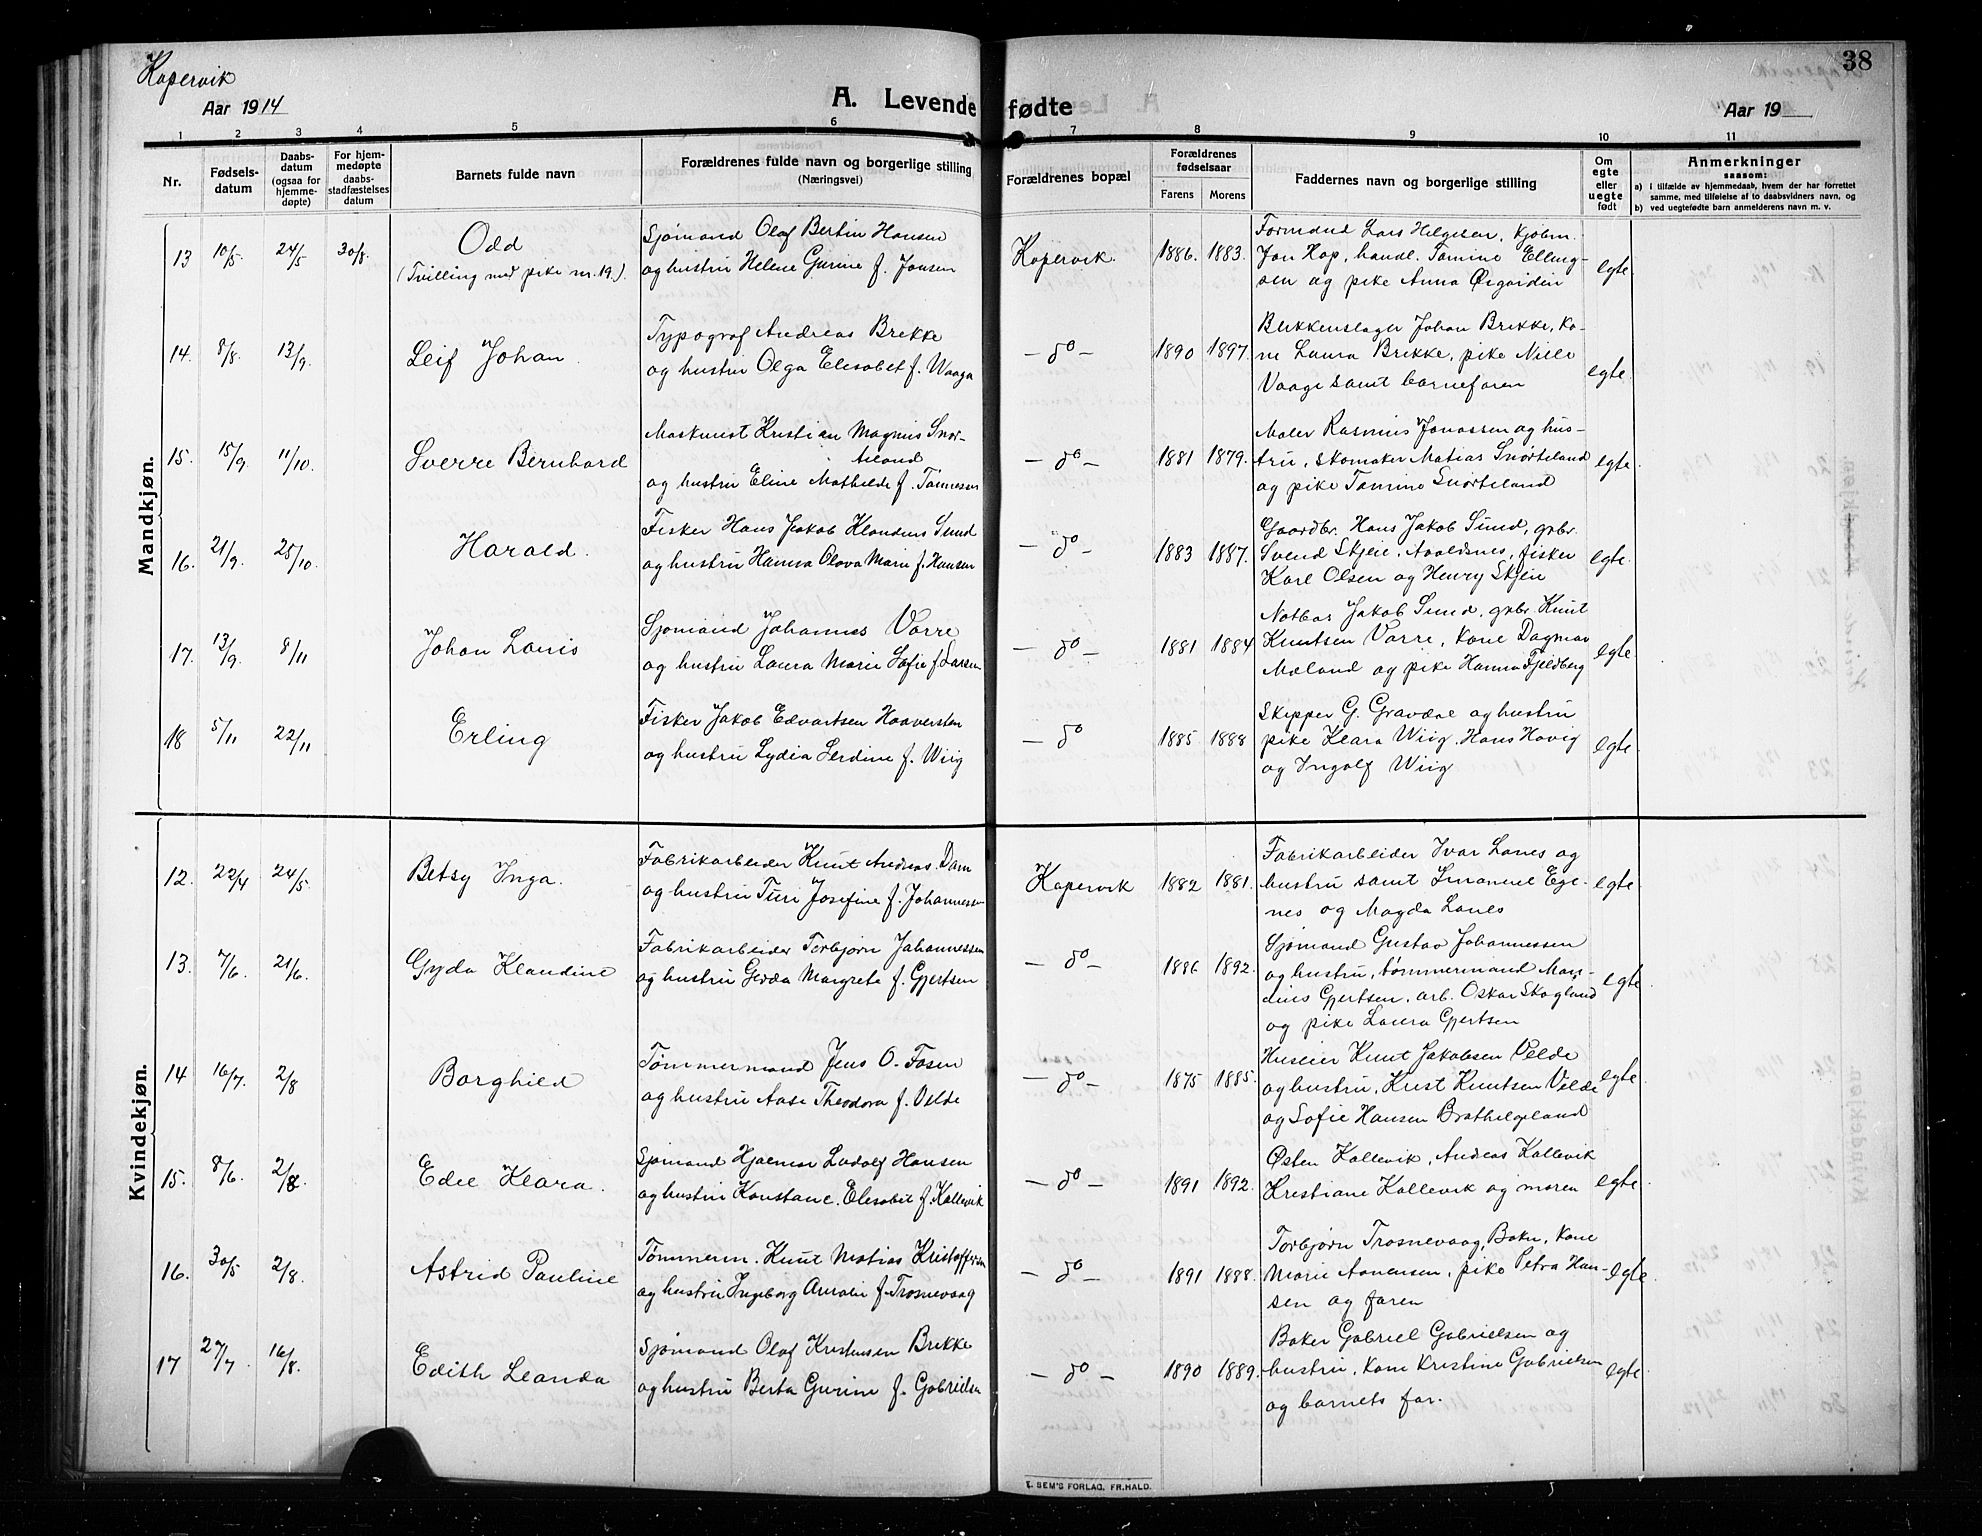 Kopervik
38
Aar 1914
A. Levende fødte
Aar 19
1 2 3 4 5 6 7 8 9 10 11
Nr.
Fødsels-
datum
Daabs-
datum
(ogsaa for
hjemme-
døpte)
For hjem-
medøpte
daabs-
stadfæstelses
datum
Barnets fulde navn
Forældrenes fulde navn og borgerlige stilling
(Næringsvei)
Forældrenes bopæl
Forældrenes
fødselsaar
Farens Morens
Faddernes navn og borgerlige stilling
Om
egte
eller
uegte
født
Anmerkninger
saasom:
a) i tilfælde av hjemmedaab, hvem der har forrettet
samme, med tilføielse av to daabsvidners navn, og
b) ved uegtefødte barn anmelderens navn m. v.
Mandkjøn.
13 10/5 24/5 30/8.
Odd
(Tvilling med pike nr. 19.)
Sjømand Olaf Bertin Hansen
og hustru Helene Gurine f. Jonsen
Kopervik 1886. 1883.
Formand Lars Helgesen, kjøbm.
Jon Hop, handl. Tomine Elling-
sen og pike Anna Øigarden
egte
14. 8/8 13/9.
Leif Johan
Typograf Andreas Brekke
og hustru Olga Elisabet f. Waage
— do — 1890 1897.
Blikkenslager Johan Brekke, ko-
ne Laura Brekke, pike Nille
Vaage samt barnefaren
egte.
15. 15/9. 11/10.
Sverre Bernhard
Maskinist Kristian Magnus Snør-
teland
og hustru Eline Mathilde f. Tønnessen
— do — 1881 1879.
Maler Rasmus Jonassen og hus-
tru, skomaker Matias Snørteland
og pike Tomine Snørteland
egte.
16. 21/9. 25/10.
Harald.
Fisker Hans Jakob Klaudius Sund
og hustru Hanna Olava Marie f. Hansen
— do — 1883 1887.
Gaardbr. Hans Jakob Sund, gbr.
Svend Skjeie, Avaldsnes, fisker
Karl Olsen og Henry Skjeie
egte.
17. 13/9. 8/11
Johan Louis
Sjømand Johannes Vorre
og hustru Laura Marie Sofie f. Larsen
— do — 1881 1884
Notbas Jakob Sund, gbr. Knut
Knutsen Vorre, kone Dagmar
Moland og pike Hanna Fjeldberg
egte.
18 5/11 22/11
Erling
Fisker Jakob Edvartsen Haaversten
og hustru Lydia Serdine f. Wiig
— do 1885 1888
Skipper G. Gravdal og hustru
pike Klara Wiig, Hans Hovig
og Ingolf Wiig
egte.
Kvindekjøn.
12. 22/4 24/5.
Betsy Inga.
Fabrikarbeider Knut Andreas Dam
og hustru Turi Josefine f. Johannessen
Kopervik 1882 1881.
Fabrikarbeider Ivar Lones og
hustru samt Emanuel Ege-
nes og Magda Lones
egte
13. 7/6. 21/6.
Gyda Klaudine
Fabrikarbeider Torbjørn Johannessen
og hustru Gerda Margrete f. Gjertsen
— do — 1886 1892.
Sjømand Gustav Johannessen
og hustru, tømmermand Man-
dius Gjertsen, arb. Oskar Skogland
og pike Laura Gjertsen
egte.
14 16/7. 2/8
Borghild
Tømmermand Jens O. Fosen
og hustru Aase Theodora f. Velde
— do — 1875 1885.
Huseier Knut Jakobsen Velde
og hustru, Krist Knutsen Velde
og Sofie Hansen Brathelgeland
egte
15. 8/6. 2/8
Edel Klara.
Sjømand Hjalmar Ludolf Hansen
og hustru Konstanc. Elisabet f. Kallevik
— do — 1891 1892.
Østen Kallevik, Andreas Kallevik
Kristiane Kallevik og moren
egte.
16. 30/5 2/8.
Astrid Pauline
Tømmerm. Knut Matias Kristoffersen
og hustru Ingeborg Amalie f. Trosnevaag
— do — 1891 1888.
Torbjørn Trosnevaag, Bokn, kone
Marie Aanensen, pike Petra Han-
sen og faren
egte.
17 27/7 16/8.
Edith Leanda
Sjømand Olaf Kristensen Brekke
og hustru Berta Gurine f. Gabrielsen
— do — 1890 1889.
Baker Gabriel Gabrielsen og
hustru, kone Kristine Gabrielsen
og barnets far.
egte
E. SEM'S FORLAG, FR.HALD.